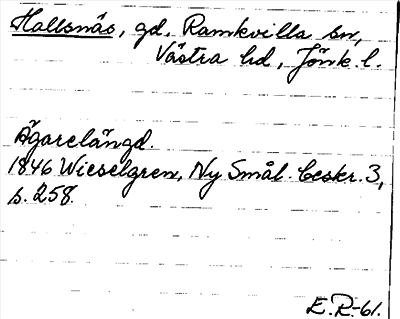 Hallsnäs, gd, Ramkvilla sn,
Västra hd, Jönk. l.
Ägarelängd.
1846 Wieselgren, Ny Smål. beskr. 3,
s. 258.
E.R.-61.